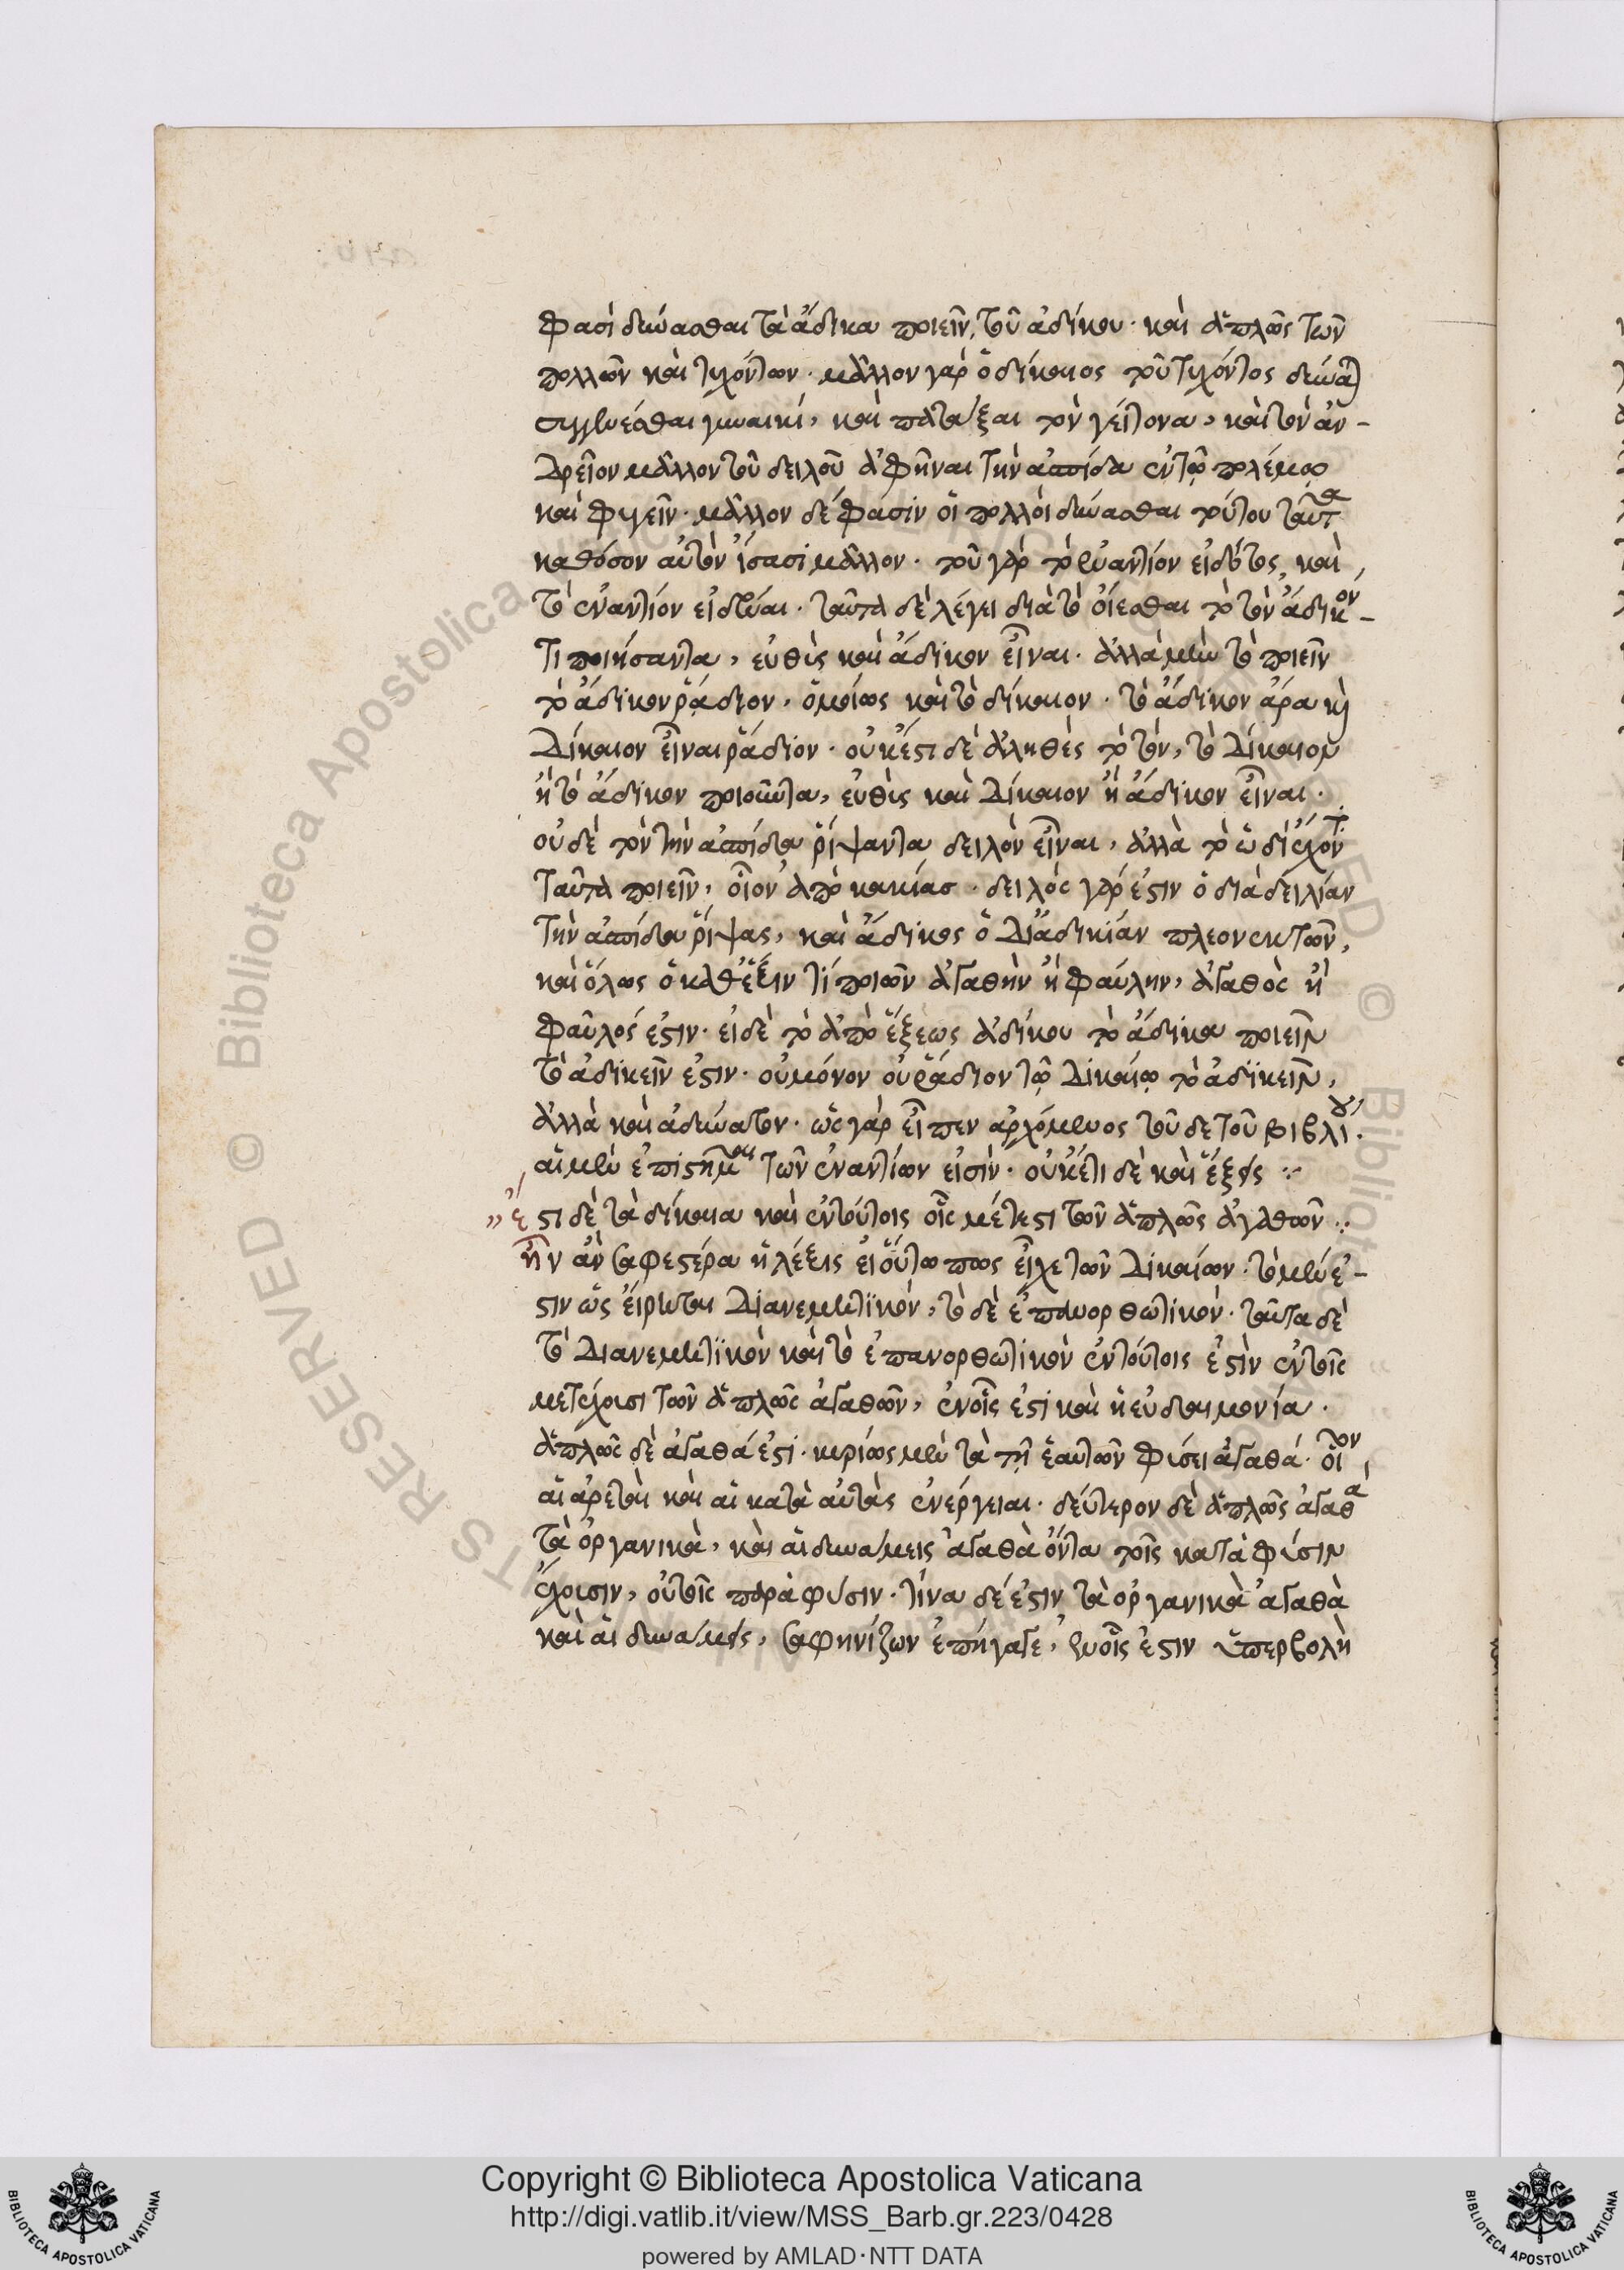 φασὶ δύνασθαι τὰ ἄδικα ποιεῖν, τοῦ ἀδίκου· καὶ ἁπλῶς τῶν
πολλῶν καὶ τυχόντων· μᾶλλον γὰρ ὁ δίκαιος τοῦ τυχόντος δύναται
συγγενέσθαι γυναικί, καὶ πατάξαι τὸν γείτονα, καὶ τὸν ἀν-
δρεῖον μᾶλλον τοῦ δειλοῦ ἀφῆναι τὴν ἀσπίδα ἐν τῷ πολέμῳ
καὶ φυγεῖν· μᾶλλον δέ φασιν οἱ πολλοὶ δύνασθαι τούτου ταῦτα
καθόσον αὐτὸν ἴσασι μᾶλλον· τοῦ γὰρ τὸ ἐναντίον εἰδότος, καὶ
τὸ ἐναντίον εἰδέναι· ταῦτα δὲ λέγει διὰ τὸ οἴεσθαι τὸ τὸν ἄδικον
τι ποιήσαντα, εὐθὺς καὶ ἄδικον εἶναι· ἀλλὰ μὴν τὸ ποιεῖν
τὸ ἄδικον ῥᾴδιον, ὁμοίως καὶ τὸ δίκαιον· τὸ ἄδικον ἄρα καὶ
δίκαιον εἶναι ῥᾴδιον· οὐκ ἔστι δὲ ἀληθὲς τὸ τὸν, τὸ δίκαιον
ἢ τὸ ἄδικον ποιοῦντα, εὐθὺς καὶ δίκαιον ἢ ἄδικον εἶναι·
οὐδὲ τὸν τὴν ἀσπίδα ῥίψαντα δειλὸν εἶναι, ἀλλὰ τὸ ὡδὶ ἔχοντ
ταῦτα ποιεῖν, οἷον ἀπὸ κακίας· δειλὸς γάρ ἐστιν ὁ διὰ δειλίαν
τὴν ἀσπίδα ῥίψας, καὶ ἄδικος ὁ δι' ἀδικίαν πλεονεκτῶν,
καὶ ὅλως ὁ καθ' ἕξιν τι ποιῶν ἀγαθὴν ἢ φαύλην, ἀγαθὸς ἢ
φαῦλός ἐστιν· εἰ δὲ τὸ ἀπὸ ἕξεως ἀδίκου τὸ ἄδικα ποιεῖν
τὸ ἀδικεῖν ἐστιν· οὐ μόνον οὐ ῥᾴδιον τῷ δικαίῳ τὸ ἀδικεῖν,
ἀλλὰ καὶ ἀδύνατον· ὡς γὰρ εἶπεν ἀρχόμενος τοῦδε τοῦ βιβλίου.
αἱ μὲν ἐπιστῆμαι τῶν ἐναντίων εἰσίν· οὐκέτι δὲ καὶ ἕξεις :~
" ἔστι δὲ τὰ δίκαια καὶ ἐν τούτοις οἷς μέτεστι τῶν ἁπλῶς ἀγαθῶν :
ἦν ἂν σαφεστέρα ἡ λέξις εἰ οὕτω πως εἶχε τῶν δικαίων· τὸ μέν ἐ-
στιν ὡς εἴρηται διανεμητικὸν, τὸ δὲ ἐπανορθωτικόν· ταῦτα δὲ
τὸ διανεμητικὸν καὶ τὸ ἐπανορθωτικὸν ἐν τούτοις ἐστὶν ἐν τοῖς
μετέχουσι τῶν ἁπλῶς ἀγαθῶν, ἐν οἷς ἐστι καὶ ἡ εὐδαιμονία·
ἁπλῶς δὲ ἀγαθά ἐστι· κυρίως μὲν τὰ τῇ ἑαυτῶν φύσει ἀγαθά· οἷον
αἱ ἀρεταὶ καὶ αἱ κατὰ αὐτὰς ἐνέργειαι· δεύτερον δὲ ἁπλῶς ἀγαθὰ
τὰ ὀργανικὰ, καὶ αἱ δυνάμεις ἀγαθὰ ὄντα τοῖς κατὰ φύσιν
ἔχουσιν, οὐ τοῖς παρὰ φύσιν· τίνα δέ ἐστιν τὰ ὀργανικὰ ἀγαθὰ
καὶ αἱ δυνάμεις, σαφηνίζων ἐπήγαγε, ἐν οἷς ἐστιν ὑπερβολὴ
Copyright © Biblioteca Apostolica Vaticana
http://digi.vatlib.it/view/MSS_Barb.gr.223/0428
powered by AMLAD·NTT DATA